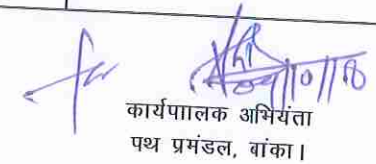 कार्यपाालक अभियंता
पथ प्रमंडल, बांका।